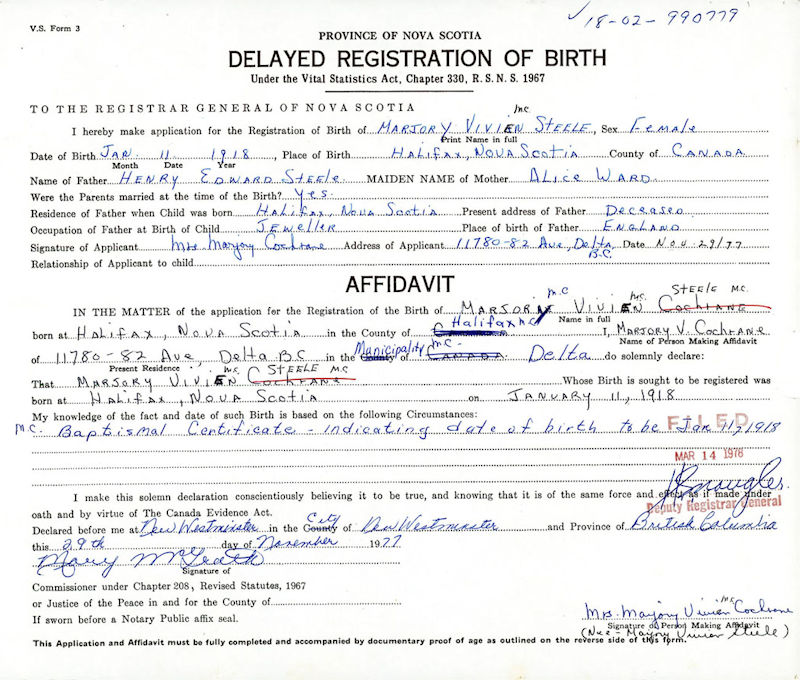 V.S. Form 3
✓18-02-990779
PROVINCE OF NOVA SCOTIA
DELAYED REGISTRATION OF BIRTH
Under the Vital Statistics Act, Chapter 330, R.S.N.S. 1967
TO THE REGISTRAR GENERAL OF NOVA SCOTIA
m.c.
I hereby make application for the Registration of Birth of MARJORY VIVIEN STEELE, Sex Female
Print Name in full
Date of Birth JAN. 11 1918, Place of Birth HALIFAX, NOVA SCOTIA County of CANADA
Month Date Year
Name of Father HENRY EDWARD STEELE MAIDEN NAME of Mother ALICE WARD
Were the Parents married at the time of the Birth? Yes.
Residence of Father when Child was born HALIFAX, NOVA SCOTIA Present address of Father DECEASED
Occupation of Father at Birth of Child JEWELLER Place of birth of Father ENGLAND
Signature of Applicant Mrs. Marjory Cochrane Address of Applicant 11780-82 Ave, Delta, B.C. Date Nov. 29/77
Relationship of Applicant to child
AFFIDAVIT
m.c. m.c. STEELE M.C.
IN THE MATTER of the application for the Registration of Birth of MARJORY VIVIEN COCHRANE
Name in full
born at HALIFAX, NOVA SCOTIA in the County of Halifax M.C. I, MARJORY V. COCHRANE
Name of Person Making Affidavit
of 11780-82 Ave, Delta BC in the County Municipality m.c. of CANADA Delta do solemnly declare:
Present Residence
m.c. STEELE M.C.
That MARJORY VIVIEN COCHRANE Whose Birth is sought to be registered was
born at HALIFAX, NOVA SCOTIA on JANUARY 11, 1918
My knowledge of the fact and date of such Birth is based on the following Circumstances:
M.C. Baptismal Certificate - indicating date of birth to be Jan 11, 1918
FILED
MAR 14 1978
I make this solemn declaration conscientiously believing it to be true, and knowing that it is of the same force and effect as if made under
Deputy Registrar General
oath and by virtue of The Canada Evidence Act.
Declared before me at New Westminster in the County City of New Westminster and Province of British Columbia
this 29th day of November 1977
Mary McGrath
Signature of
Commissioner under Chapter 208, Revised Statutes, 1967
or Justice of the Peace in and for the County of
If sworn before a Notary Public affix seal.
m.c.
Mrs. Marjory Vivien Cochrane
Signature of Person Making Affidavit
(Nee - Marjory Vivian Steele)
This Application and Affidavit must be fully completed and accompanied by documentary proof of age as outlined on the reverse side of this form.